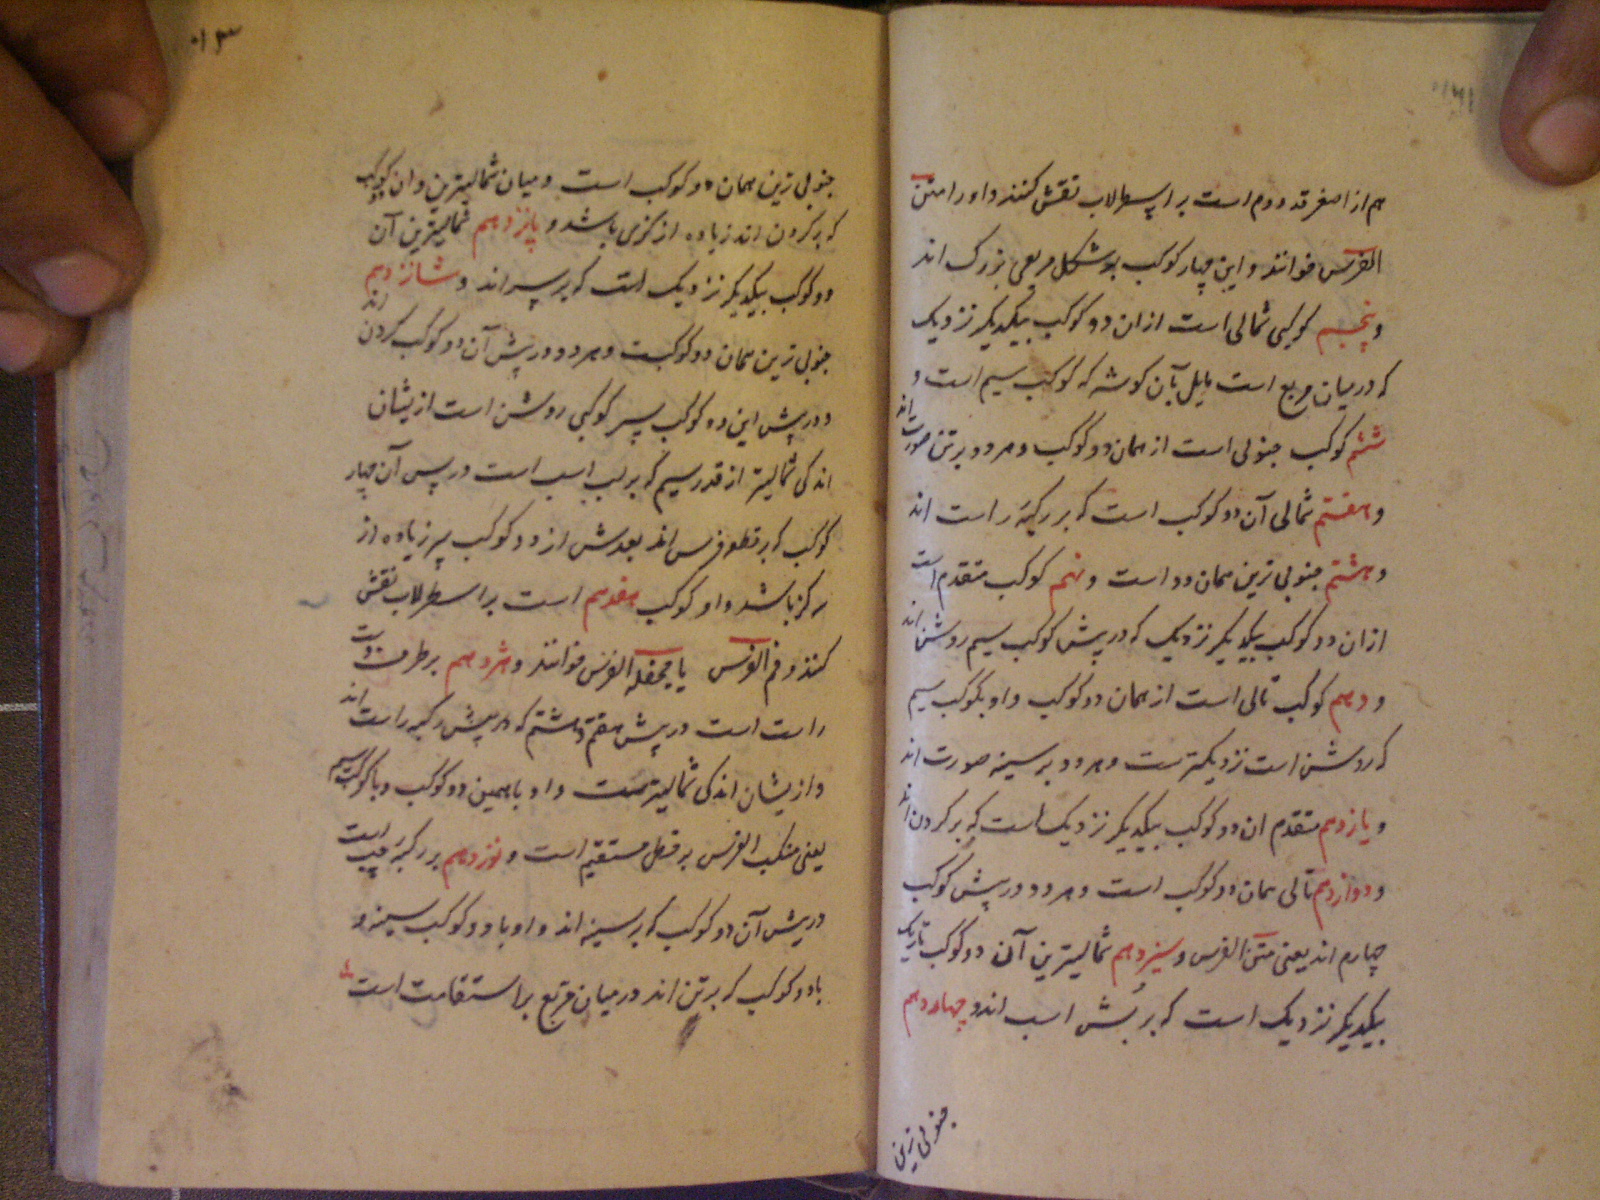 هم از اصغر قدر دوم است بر اسطرلاب نقش کنند و او را متن
الفرس خوانند و این چهار کوکب بر شکل مربعی بزرگ اند
و پنجم کوکبی شمالی است ازان دو کوکب بیکدیگر نزدیک
که در میان مربع است مایل بآن گوشه که کوکب سیم است و
ششم کوکب جنوبی است از همان دو کوکب و هر دو بر تن صورت اند
و هفتم شمالی آن دو کوکب است که بر رکبه راست اند
و هشتم جنوبی ترین همان دو است و نهم کوکب متقدم است
ازان دو کوکب بیکدیگر نزدیک که در پیش کوکب سیم روشن اند
و دهم کوکب تالی است از همان دو کوکب و او بکوکب سیم
که روشن است نزدیکترست و هر دو بر سینه صورت اند
و یازدهم متقدم ان دو کوکب بیکدیگر نزدیک است که بر گردن اند
و دوازدهم تالی همان دو کوکب است و هر دو در پیش کوکب
چهارم اند یعنی متن الفرس و سیزدهم شمالیترین آن دو کوکب تاریک
بیکدیگر نزدیک است که بر بش اسب اند و چهاردهم
جنوبی ترین
جنوبی ترین همان دو کوکب است و میان شمالیترین و ان دو کوکب
که بر گردن اند زیاده از گزی باشد و پانزدهم شمالیترین آن
دو کوکب بیکدیگر نزدیک است که بر سر اند و شانزدهم
جنوبی ترین همان دو کوکبست و هر دو در پیش آن دو کوکب گردن اند
و در پیش این دو کوکب سر کوکبی روشن است ازیشان
اندکی شمالیتر از قدر سیم که بر لب اسب است در پس آن چهار
کوکب که بر قطعه فرس اند بعدش از دو کوکب سر زیاده از
سه گز باشد و او کوکب هفدهم است بر اسطرلاب نقش
کنند و فم الفرس یا جحفله الفرس خوانند و هژدهم بر طرف دست
راست است در پیش هفتم و هشتم که در پیش رکبه راست اند
و ازیشان اندکی شمالیترست و او با همین دو کوکب و با کوکب سیم
یعنی منکب الفرس بر خط مستقیم است و نوزدهم بر رکبه چپ است
در پیش آن دو کوکب که بر سینه اند و او با دو کوکب سینه و
با دو کوکب که بر تن اند در میان مربع بر استقامت است